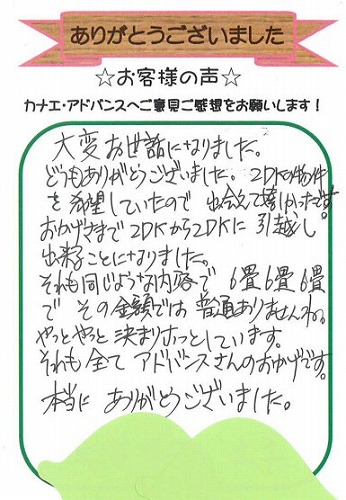 ありがとうございました
☆お客様の声☆
カナエ・アドバンスへご意見ご感想をお願いします！
大変お世話になりました。
どうもありがとうございました。2DKの物件
を希望していたので 出会えて嬉しかったです
おかげさまで 2DKから2DKに 引越し
出来ることになりました。
それも同じような内容で 6畳6畳6畳
で その金額では 普通ありませんね。
やっとやっと 決まりホッとしています。
それも全て アドバンスさんのおかげです。
本当に ありがとうございました。